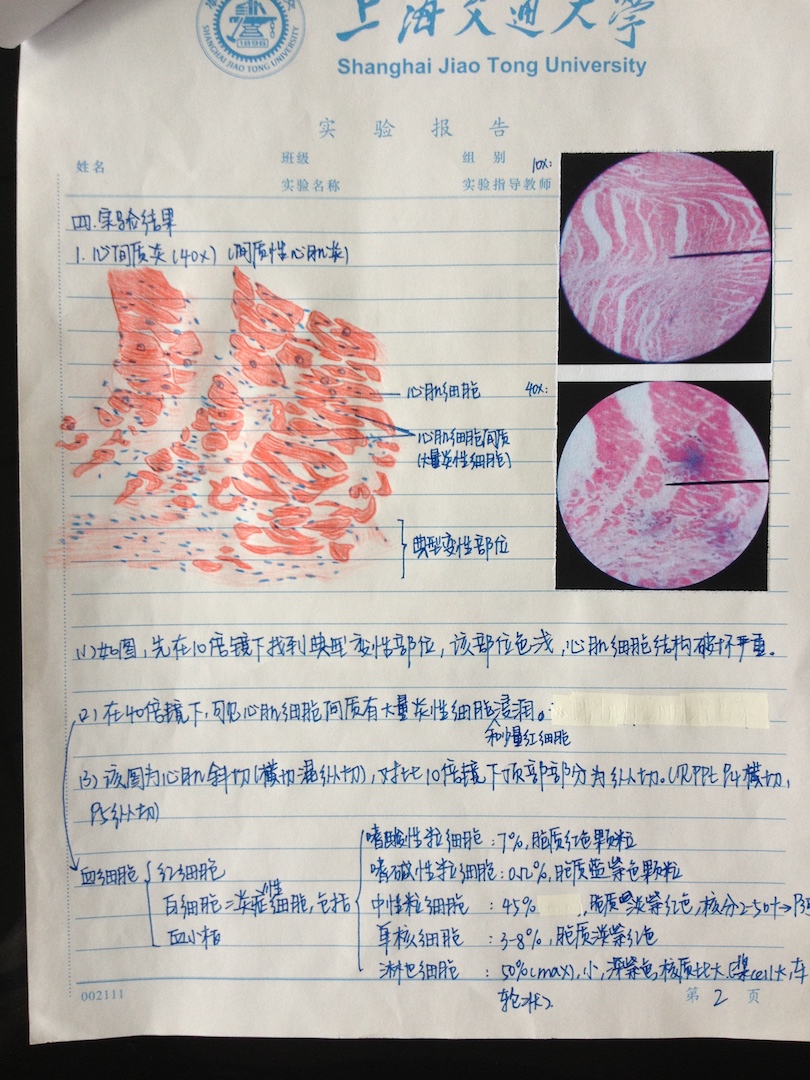 上海交通大学
SHANGHAI JIAO TONG UNIVERSITY
1896
Shanghai Jiao Tong University
实验报告
姓名 班级 组别
实验名称 实验指导教师
10x:
四.实验结果
1.心间质炎(40x) (间质性心肌炎)
心肌细胞
40x:
心肌细胞间质
(大量炎性细胞)
典型变性部位
(1)如图,先在10倍镜下找到典型变性部位,该部位色浅,心肌细胞结构破坏严重。
(2)在40倍镜下,可见心肌细胞间质有大量炎性细胞浸润。
和少量红细胞
(3)该图为心肌斜切(横切混纵切),对比10倍镜下顶部部分为纵切。(见PPT P4横切,
P5纵切)
血细胞 红细胞
白细胞=炎症细胞,包括
炎性
血小板
嗜酸性粒细胞:7%,胞质红色颗粒
嗜碱性粒细胞:0.2%,胞质蓝紫色颗粒
中性粒细胞:45%,胞质淡紫红色,核分2-5叶→
单核细胞:3-8%,胞质淡紫红色
淋巴细胞:50%(max),小,深紫色,核质比大 cell大,车
轮状)
002111
第 2 页